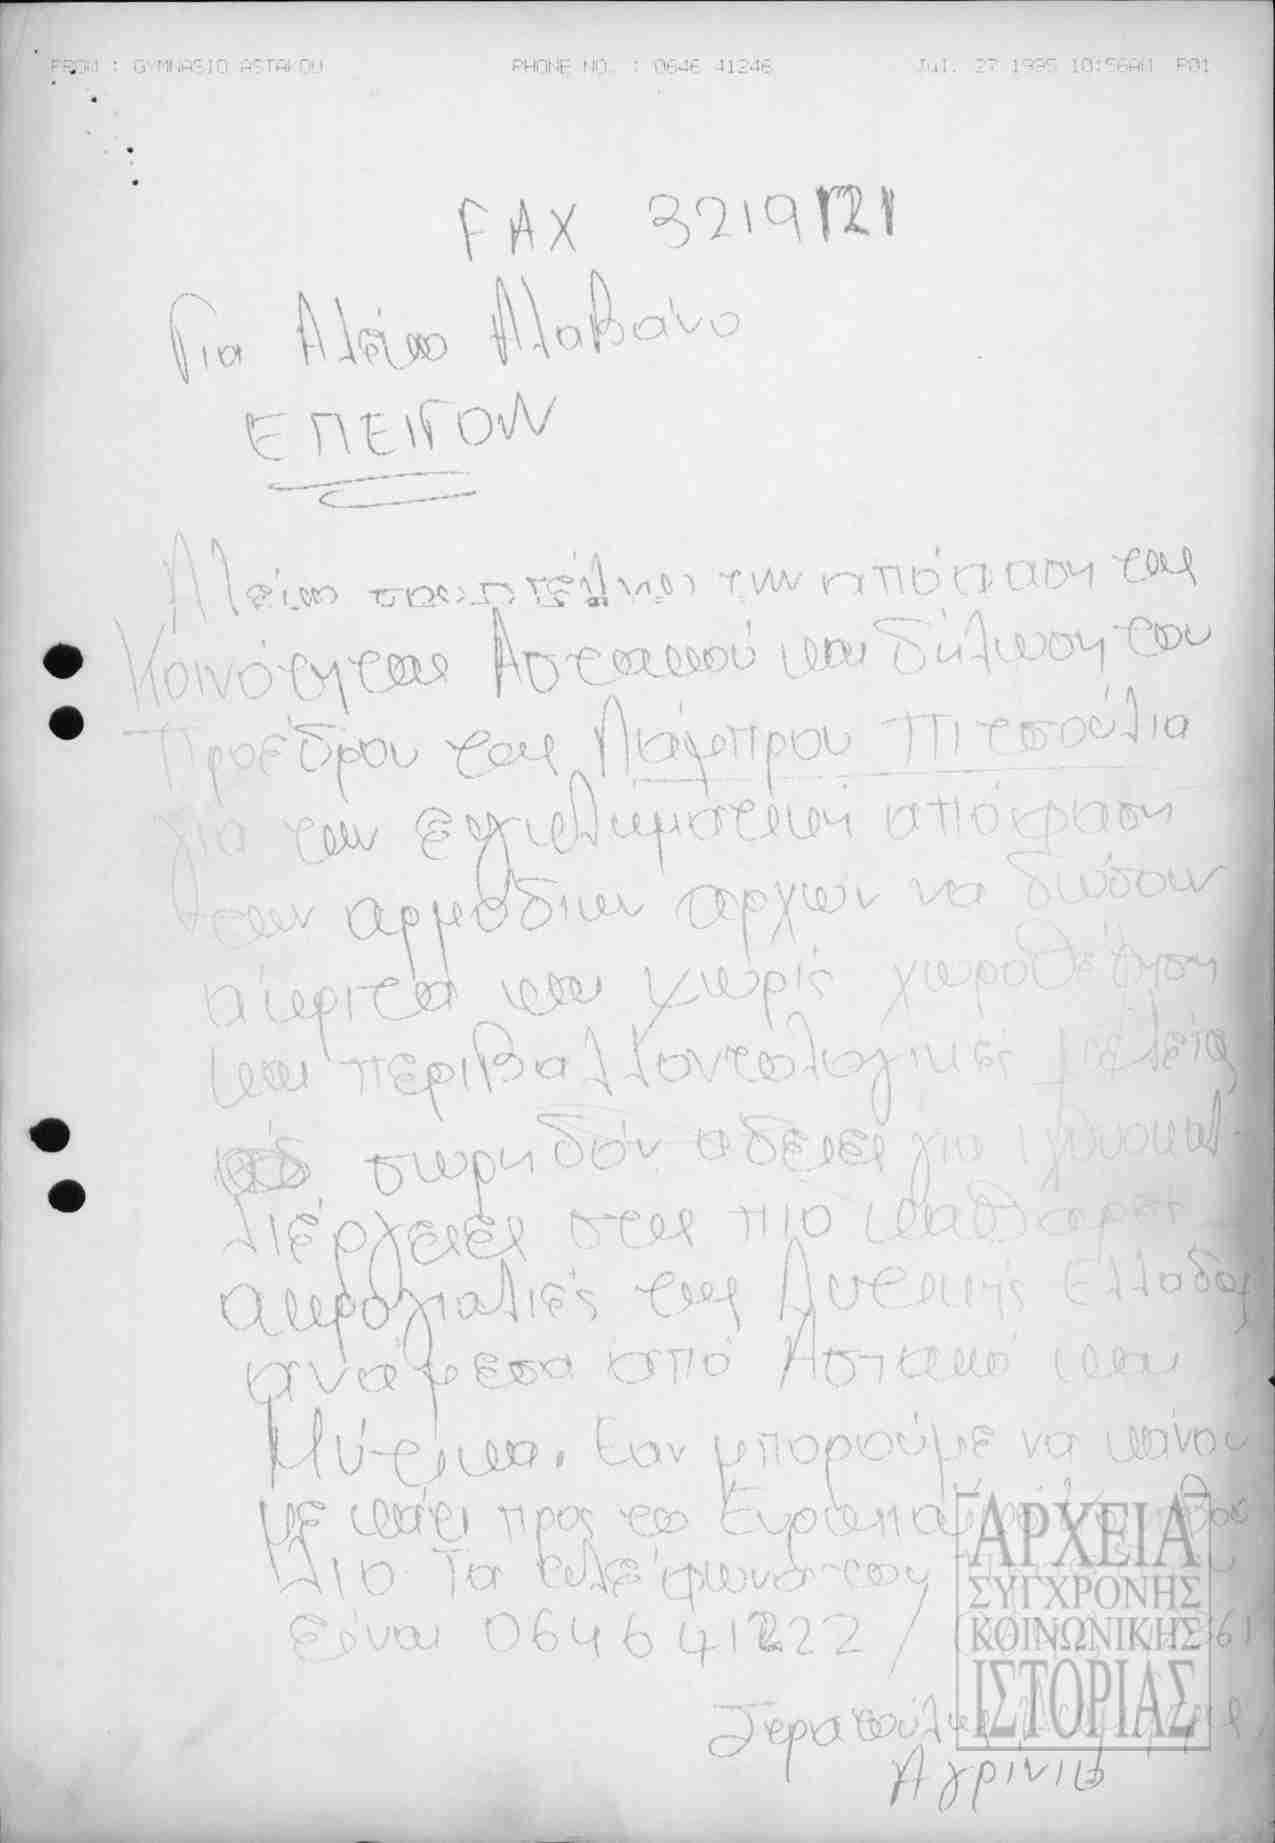 FROM : GYMNASIO ASTAKOU PHONE NO. : 0646 41246 Jul. 27 1995 10:56AM P01
FAX 3219121
Για Αλέκο Αλαβάνο
ΕΠΕΙΓΟΝ
Αλέκο σου στέλνω την απόφαση της
Κοινότητας Αστακού και δήλωση του
Προέδρου της Λάμπρου Πιτσούλια
για την εγκληματική απόφαση
των αρμόδιων αρχών να δώσουν
άκριτα και χωρίς χωροθέτηση
και περιβαλλοντολογικές μελέτες
σωρηδόν άδειες για ιχθυοκαλ-
λιέργειες στις πιο καθαρές
ακρογιαλιές της Δυτικής Ελλάδας
ανάμεσα από Αστακό και
Μύτικα. Εαν μπορούμε να κάνου
με κάτι προς το Ευρωπαϊκό
λιο. Τα τηλέφωνα του
είναι 0646 41222 / 361
Αγρίνιο
ΑΡΧΕΙΑ
ΣΥΓΧΡΟΝΗΣ
ΚΟΙΝΩΝΙΚΗΣ
ΙΣΤΟΡΙΑΣ